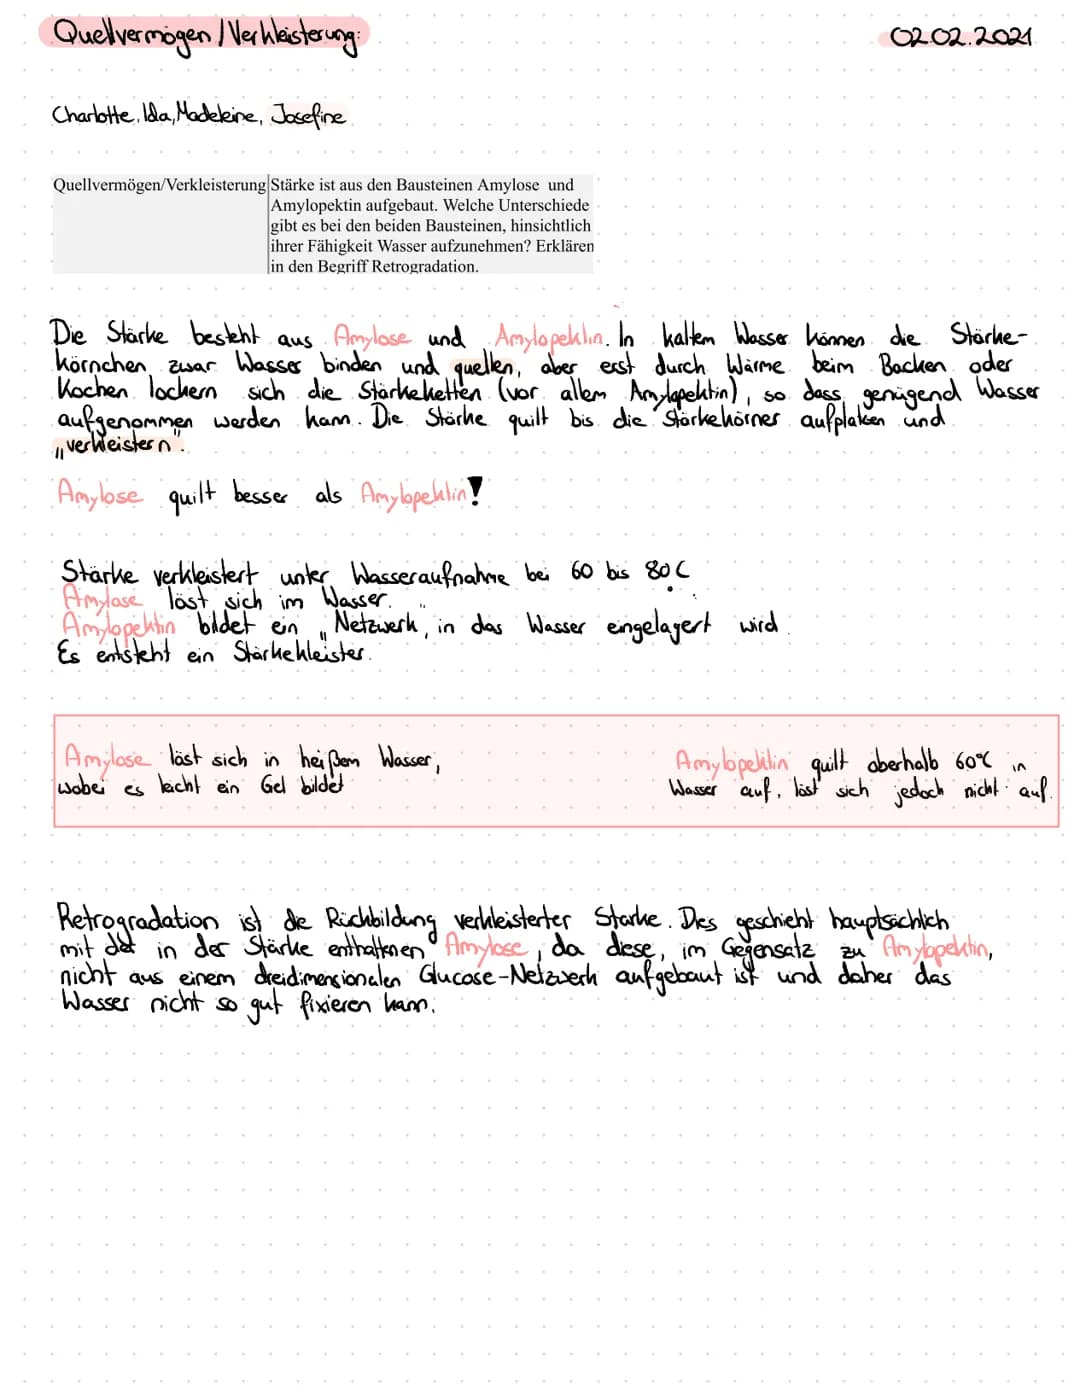 Quellvermögen / Verkleisterung:
02.02.2021
Charlotte, Ida, Madeleine, Josefine
Quellvermögen/Verkleisterung
Stärke ist aus den Bausteinen Amylose und
Amylopektin aufgebaut. Welche Unterschiede
gibt es bei den beiden Bausteinen, hinsichtlich
ihrer Fähigkeit Wasser aufzunehmen? Erklären
in den Begriff Retrogradation.
Die Stärke besteht aus Amylose und Amylopektin. In kaltem Wasser können die Stärke-
körnchen zwar Wasser binden und quellen, aber erst durch Wärme beim Backen oder
Kochen lockern sich die Stärkeketten (vor allem Amylopektin), so dass genügend Wasser
aufgenommen werden kann. Die Stärke quilt bis die Stärkekörner aufplatzen und
„verkleistern".
Amylose quilt besser als Amylopektin!
Stärke verkleistert unter Wasseraufnahme bei 60 bis 80 C
Amylose löst sich im Wasser.
Amylopektin bildet ein „Netzwerk", in das Wasser eingelagert wird.
Es entsteht ein Stärkekleister.
Amylose löst sich in heißem Wasser,
wobei es leicht ein Gel bildet
Amylopektin quilt oberhalb 60°C in
Wasser auf, löst sich jedoch nicht auf.
Retrogradation ist die Rückbildung verkleisterter Stärke. Dies geschieht hauptsächlich
mit der in der Stärke enthaltenen Amylose, da diese, im Gegensatz zu Amylopektin,
nicht aus einem dreidimensionalen Glucose-Netzwerk aufgebaut ist und daher das
Wasser nicht so gut fixieren kann.